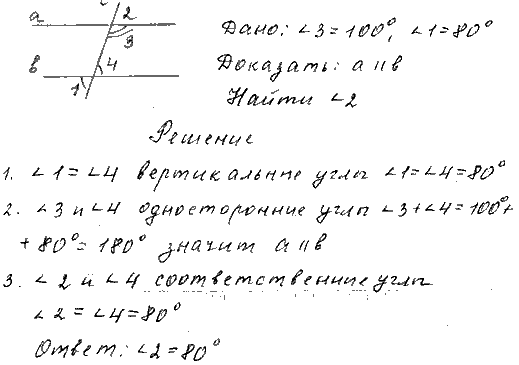 c
a 2
3
в 4
1
Дано: ∠3=100°, ∠1=80°
Доказать: а || в
Найти ∠2
Решение
1. ∠1=∠4 вертикальные углы ∠1=∠4=80°
2. ∠3 и ∠4 односторонние углы ∠3+∠4=100°+
+80°=180° значит а || в
3. ∠2 и ∠4 соответственные углы
∠2=∠4=80°
Ответ: ∠2=80°